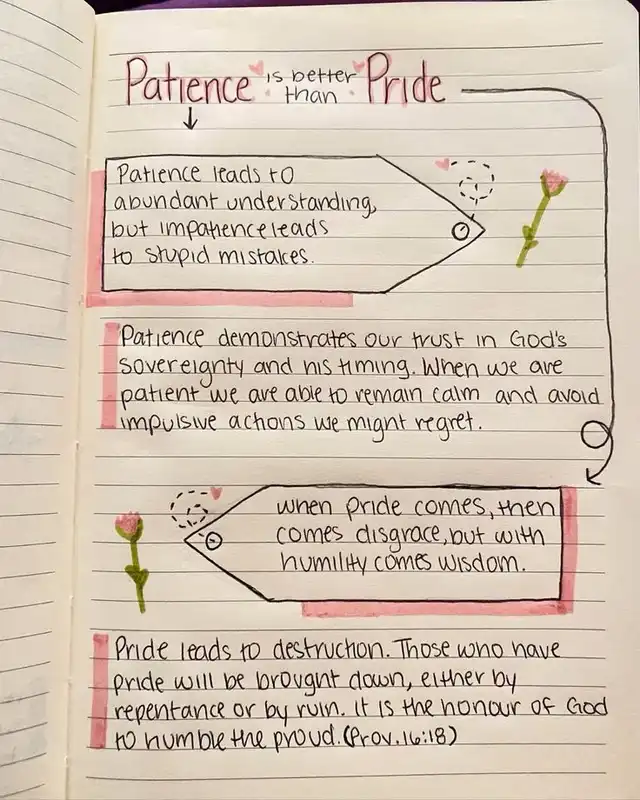 Patience is better than Pride
Patience leads to
abundant understanding,
but impatience leads
to stupid mistakes.
Patience demonstrates our trust in God's
sovereignty and his timing. When we are
patient we are able to remain calm and avoid
impulsive actions we might regret.
when pride comes, then
comes disgrace, but with
humility comes wisdom.
Pride leads to destruction. Those who have
pride will be brought down, either by
repentance or by ruin. it is the honour of God
to humble the proud. (Prov. 16:18)